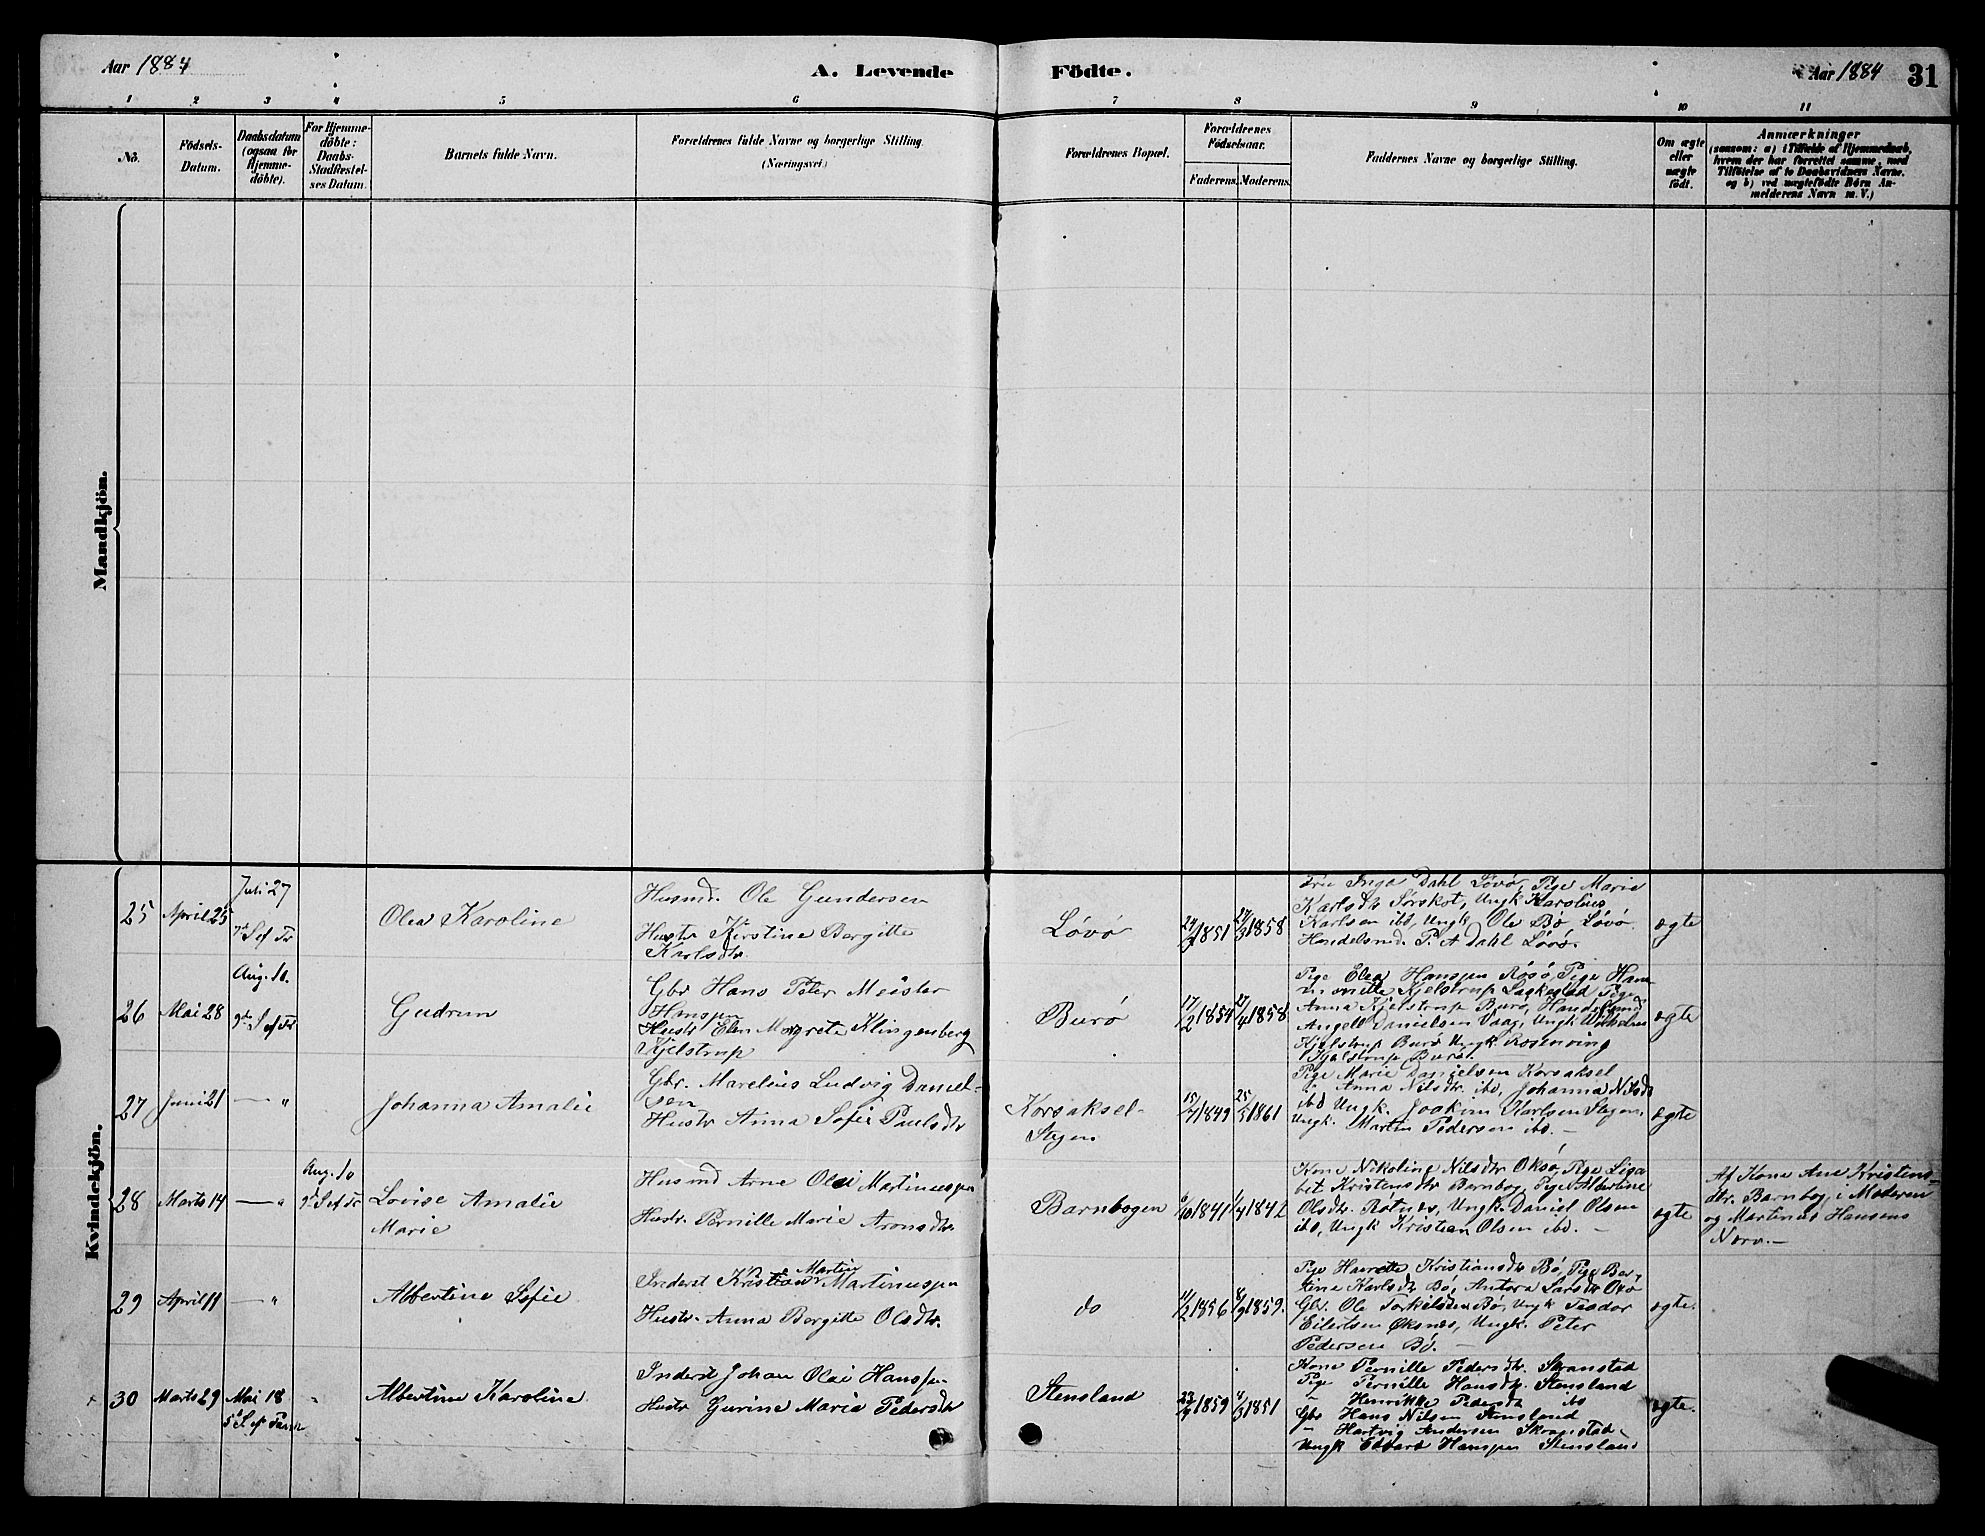 Aar 1884
A. Levende Födte.
Aar 1884 31
1 2 3 4 5 6 7 8 9 10 11
No.
Födsels-
Datum.
Daabsdatum
(ogsaa for
Hjemme-
döbte).
For Hjemme-
döbte:
Daabs-
Stadfestel-
ses Datum.
Barnets fulde Navn.
Forældrenes fulde Navne og borgerlige Stilling.
(Næringsvei)
Forældrenes Bopæl.
Forældrenes
Födselsaar.
Faderens. Moderens.
Faddernes Navne og borgerlige Stilling.
Om ægte
eller
uægte
födt.
Anmærkninger
(saasom: a) i Tilfælde af Hjemmedaab,
hvem der har forrettet samme, med
Tilföielse af to Daabsvidners Navne.
og b) ved uægtefödte Börn An-
melderens Navn m. V.)
Mandkjön.
Kvindekjön.
25
April 25
Juli 27
7 S ef Tr
Olea Karoline
Husmd. Ole Gundersen
Hustr Kirstine Bergitte
Karlsdtr
Løvø
24/2 1851
27/3 1858
Inga Dahl Løvø, Pige Marie
Karlsdtr Sørskot, Ungk Karolius
Karlsen ibd, Ungk Ole Bø Løvø
Handelsmd. P. A Dahl Løvø.
ægte
26
Mai 28
Aug. 10.
9de S ef Tr
Gudrun
Gbr Hans Peter Meister
Hanssen
Hustr Elen Margrete Klingenberg
Kjelstrup
Burø
17/2 1854
27/4 1858
Pige Elea Hanssen Røsø, Pige Han-
Kjelstrup Pige
Anna Kjelstrup Burø, Handelsmd
Angell Danielsen Vaag, Ungk Wilhelm
Kjelstrup Burø Ungk. Rosenving
Kjelstrup Burø.
ægte
27
Juni 21
— "
Johanna Amalie
Gbr. Marelius Ludvig Daniel-
sen
Hustr Anna Sofie Paulsdtr
Korsaksel-
Stegen
15/7 1849
25/5 1861
Pige Marie Danielsen Korsaksel
Anna Nilsdtr. ibd, Johanna Nilsdtr
ibd Ungk. Joakim Karlsen Stegen,
Ungk. Martin Pedersen ibd. —
ægte
28
Marts 14
— "
Aug. 10
9de S ef Tr
Lovise Amalie
Marie
Husmd Arne Olai Martinussen
Hustr. Pernille Marie Aronsdtr.
Barnbogen
6/10 1841
1/4 1842
Kone Nikoline Nilsdtr Oksø, Pige Lisa-
bet Kristensdtr Barnbog, Pige Albertine
Olsdtr. Røtnes, Ungk. Daniel Olsen
ibd, Ungk Kristian Olsen ibd. —
ægte
Af Kone Ane Kristens-
dtr. Barnbog, i Moderen
og Martinus Hansens
Nærv. —
29
April 11
— "
Albertine Sofie
Martin
Inderst Kristian Martinussen
Hustr. Anna Bergitte Olsdtr.
do
11/2 1856
8/9 1859.
Pige Kristiansdtr Bø, Pige Ber-
tine Karlsdtr Bø, Antora Larsdtr
Gbr. Ole Torkildsen Bø, Ungk Teodor
Eilertsen Øksnes, Ungk. Peter
Pedersen Bø. —
ægte.
30
Marts 29
Mai 18
5 S ef Paask
"
Albertine Karoline
Inderst Johan Olai Hanssen
Hustr Gurine Marie Pedersdtr
Stensland
23/9 1859
4/3 1851
Kone Pernille Pedersdtr. Skranstad
Pige Pernille Hansdtr. Stensland
" Henrikke Pedersdtr ibd
Gbr Hans Nilsen Stensland
" Hartvig Andersen Skranstad
Ungk Edvard Hanssen Stensland
ægte.